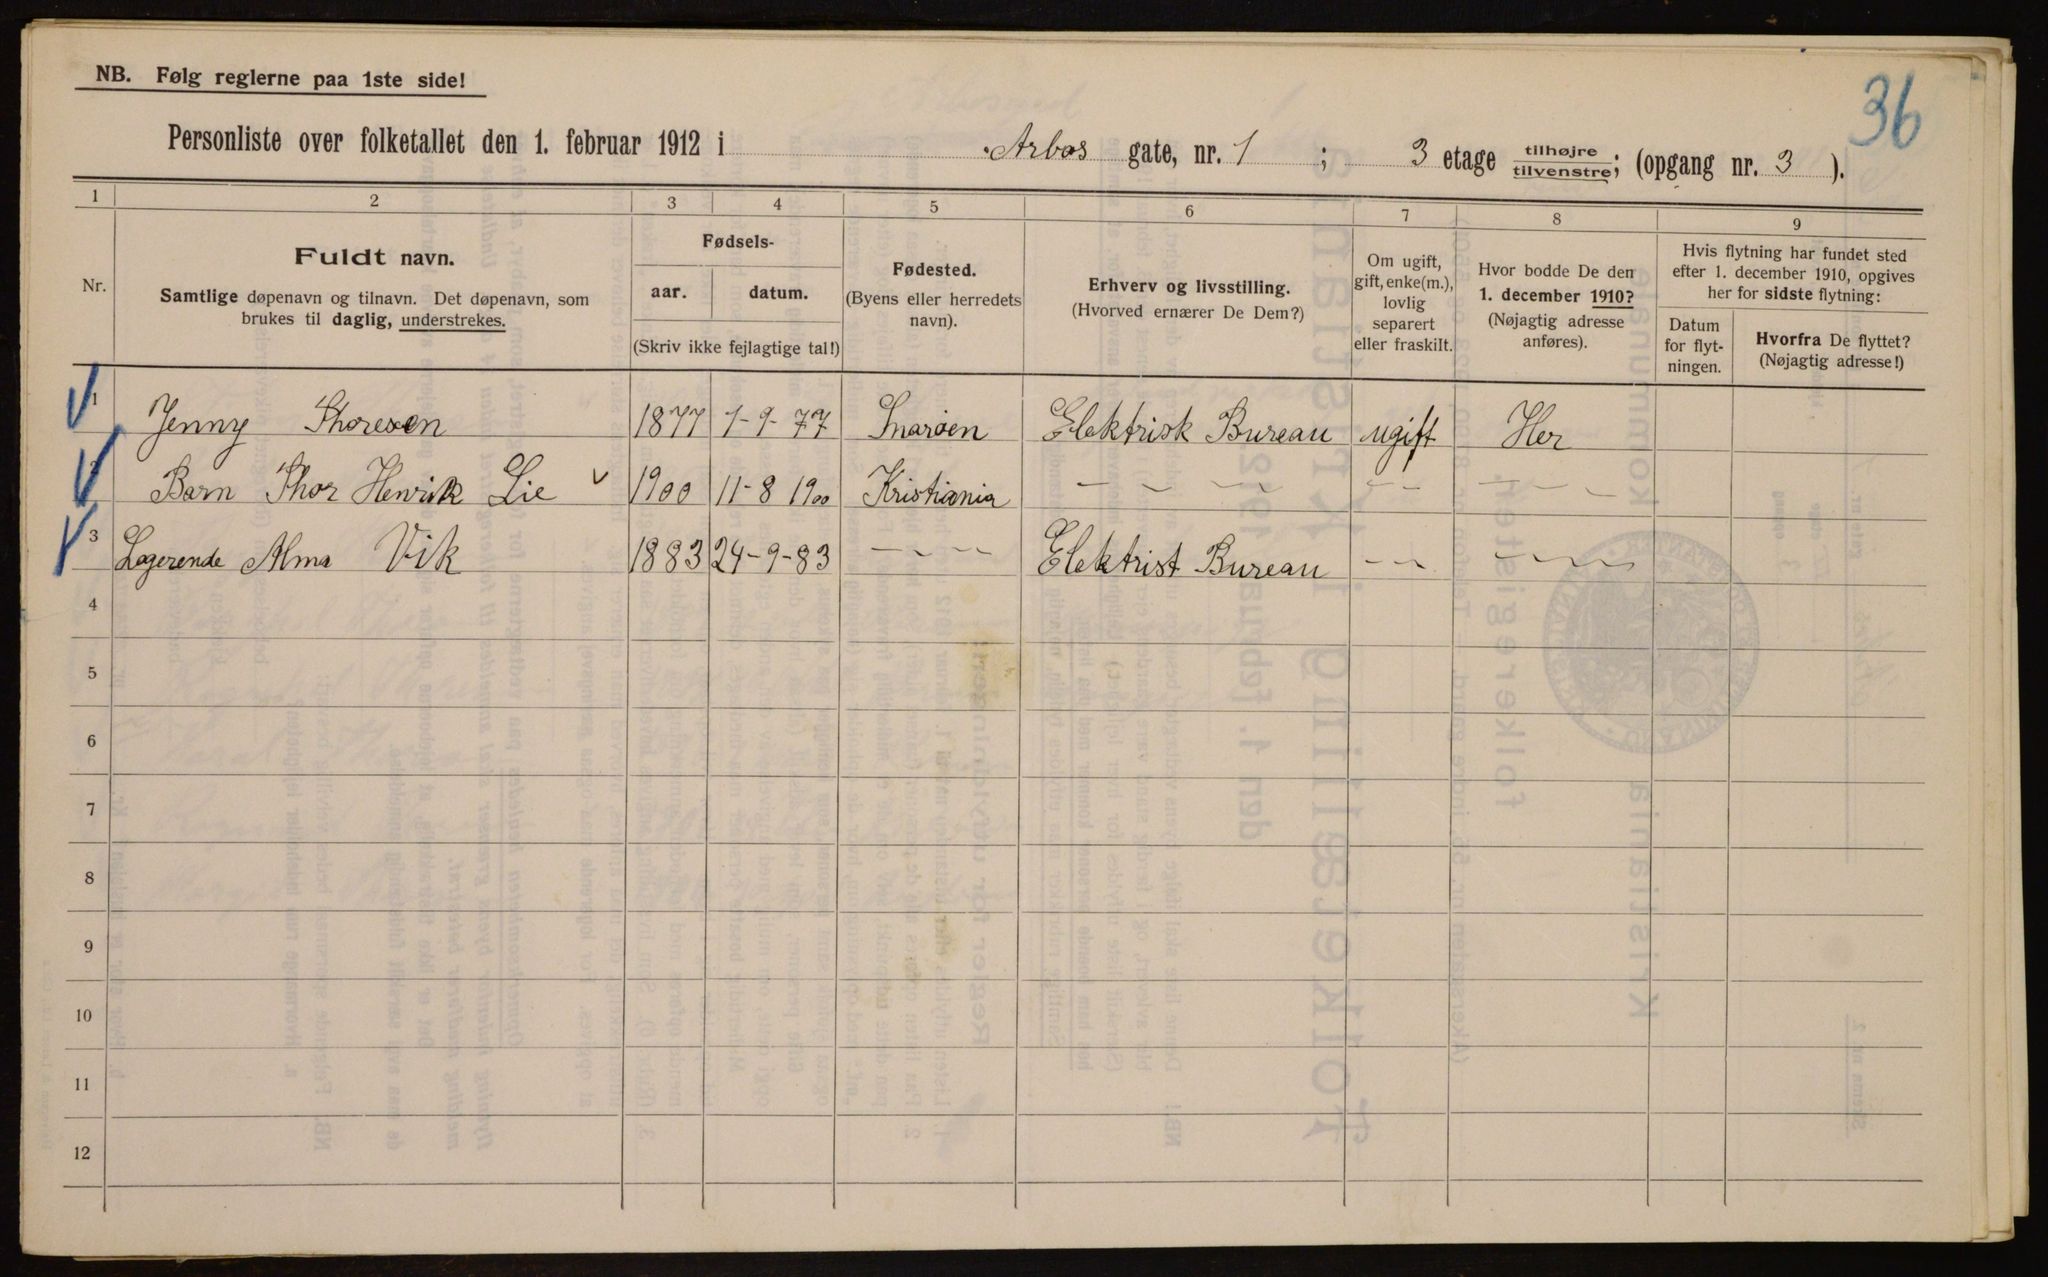 36
NB. Følg reglerne paa 1ste side!
Personliste over folketallet den 1. februar 1912 i Arbos gate, nr. 1 ; 3 etage tilhøjre tilvenstre; (opgang nr. 3 ).
1 2 3 4 5 6 7 8 9
Nr.
Fuldt navn.
Samtlige døpenavn og tilnavn. Det døpenavn, som
brukes til daglig, understrekes.
Fødsels-
aar. datum.
(Skriv ikke fejlagtige tal!)
Fødested.
(Byens eller herredets
navn).
Erhverv og livsstilling.
(Hvorved ernærer De Dem?)
Om ugift,
gift, enke(m.),
lovlig
separert
eller fraskilt.
Hvor bodde De den
1. december 1910?
(Nøjagtig adresse
anføres).
Hvis flytning har fundet sted
efter 1. december 1910, opgives
her for sidste flytning:
Datum
for flyt-
ningen.
Hvorfra De flyttet?
(Nøjagtig adresse!)
1 Jenny Thoresen 1877 1-9-77 Snarøen Elektrisk Bureau ugift Her
2 Barn Thor Henrik Lie 1900 11-8 1900 Kristiania - - - - - - - - - -
3 Logerende Alma Vik 1883 24-9-83 - - - - Elektrist Bureau - - - - - -
4
5
6
7
8
9
10
11
12